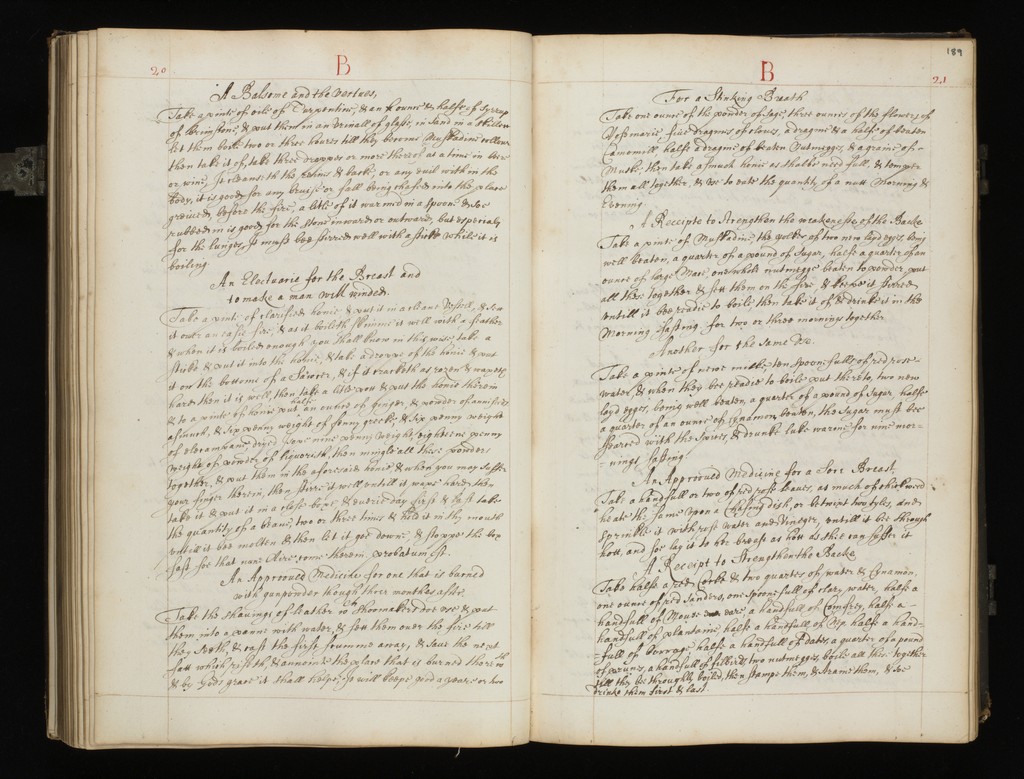 20
B
A Balsome and the vertues,
Take a pinte of oile of Turpentine, & an ounce & halfe of Syrrop
of Brimstone, & put them in an urinall of glasse, in sand in a skillett
let them boile two or three houres till they become Muskadine collour
then take it of, take three droppes or more thereof at a time in beere
or wine, It cleanseth the reines & back, or any evill within the
body, it is good for any bruise or fall being chafed into the place
greived, before the fire, a little of it warmed in a spoone & soe
rubbed in is good for the stone inward or outward, but especialy
for the lunges, It must bee stirred well with a sticke while it is
boiling
An Electuarie for the Breast and
to make a man well winded.
Take a pint of clarified honie & put it in a cleane vessell, & sew
it over an easie fire, & as it boileth skimme it well with a feather
& when it is boiled enough you shall know in this wise, take a
sticke & put it into the honie, & take a droppe of the honie & put
it on the bottome of a Sawcer, & if it cracketh as rozen & waxeth
hard then it is well, then take a little pott & put the honie therein
& to a pinte of honie put halfe an ounce of ginger, & powder of
& six penny weight of fenny greeke, & six penny weight
of elecampane dryed, nine penny weight, eighteene penny
weight of powder of liquorish, then mingle all these powders
together, & put them in the aforesaid honie, & when you may suffer
your finger therein, then stirre it well untill it waxe hard, then
take it & put it in a close boxe, & everie day first & last take
the quantity of a beane, two or three times & hold it in thy mouth
untill it bee molten & then let it goe downe, & stoppe the box
fast soe that none Aire come therein, probatum est.
An Approoued Medicine for one that is burned
with gunpowder though three monthes after.
Take the shavings of leather as Shoomakers doe use & put
them into a panne with water, & sett them over the fire till
they seeth, & cast the first scumme away, & save the next
fatt which riseth, & annoint the place that is burned therewith
& by Gods grace it shall helpe, It will keepe good a yeare or two
189
21
B
For a Stinking Breath
Take one ounce of the powder of sage, three ounces of the flowers of
Rosemarie, five dragmes of cloves, a dragme & a halfe of beaten
Cammomill halfe a dragme of beaten Nutmegge, & a graine of
Muske, then take as much honie as shalbe need full, & temper
them all together, & use to eate the quantity of a nutt Morning &
Evening.
A Receipte to strengthen the weakenesse of the Backe
Take a pinte of Muskadine, the yolkes of two new layd egges, being
well beaten, a quarter of a pound of Sugar, halfe a quarter of an
ounce of large Mace, one whole nutmegge beaten to powder, put
all these together & sett them on the fire, & keepe it stirred
untill it bee readie to boile, then take it of & drinke it in the
Morning fasting for two or three mornings together
Another for the same &c.
Take a pinte of newe milke, ten spoonefulls of red rose
water, & when they bee readie to boile put thereto, two new
layd egges, being well beaten, a quarter of a pound of Sugar, halfe
a quarter of an ounce of Cynamon beaten, the Sugar must bee
seared with the spices, & drunke luke warme for nine mor-
-nings fasting.
An Approoued Medicine for a Sore Breast,
Take a handfull or two of red rose leaves, as much of chickweed
heate the same upon a Chafing dish, or betwixt two tyles, and
sprinkle it with rose water and Vineger, untill it bee through
hott, and soe lay it to her breast as hott as shee can suffer it
A Receipt to Strengthen the Backe
Take halfe a red Cocke & two quartes of water & Cynamon,
one ounce of red Sanders, one spoonefull of clary water, halfe a
handfull of Mouse eare a handfull of Comfrey, halfe a
handfull of plantaine halfe a handfull of Nep, halfe a hand-
-full of borrage halfe a handfull of dates, a quarter of a pound
of prunes, a handfull of fillberts two nutmegges, boile all these together
till they be throughly boiled, then stampe them, & straine them, & soe
drinke them first & last.